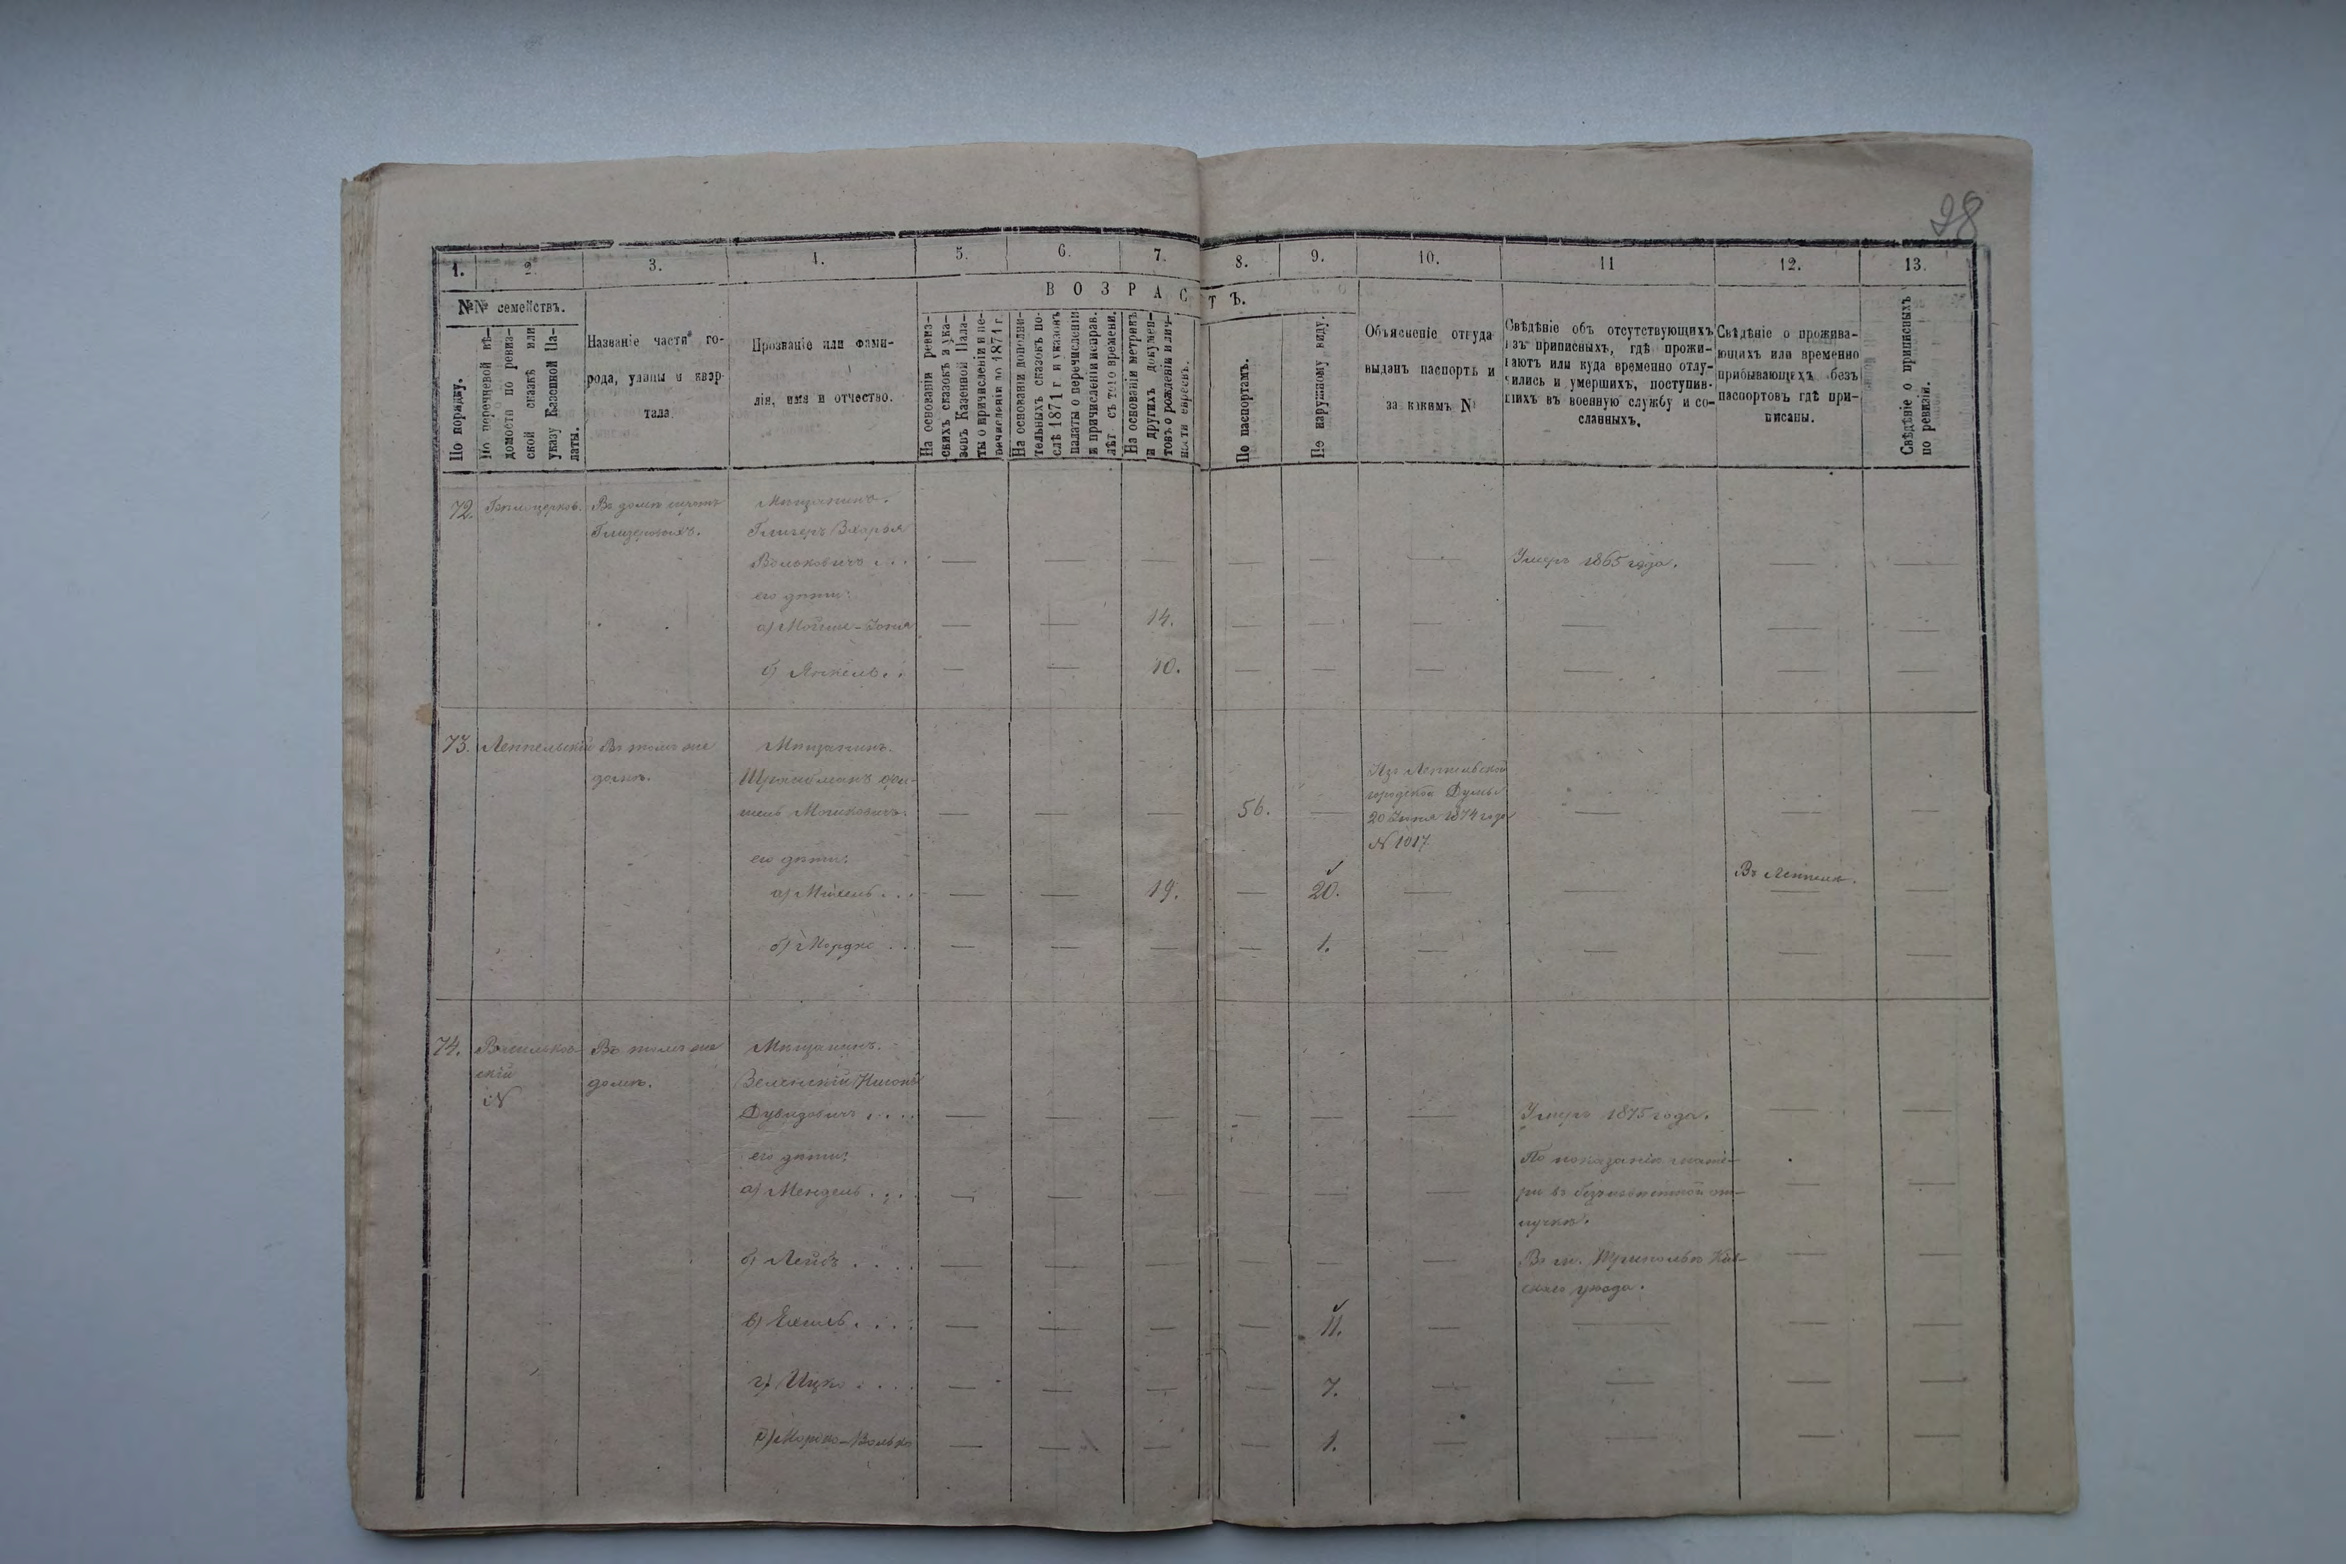 28
1. 2. 3. 4. 5. 6. 7. 8. 9. 10. 11 12. 13.
№№ семействъ.
По порядку.
По перечневой вѣ-
домости по ревиз-
ской сказкѣ или
указу Казенной Па-
латы.
Названіе части го-
рода, улицы и квар-
тала.
Прозваніе или фами-
лія, имя и отчество.
ВОЗРАСТЪ.
На основаніи ревиз-
скихъ сказокъ и ука-
зовъ Казенной Пала-
ты о причисленіи и пе-
речисленіи до 1871 г.
На основаніи дополни-
тельныхъ сказокъ по-
слѣ 1871 г. и указовъ
палаты о перечисленіи
и причисленіи исправ.
лѣт съ того времени.
На основаніи метрикъ
и другихъ докумен-
товъ о рожденіи и лич-
ности евреевъ.
По паспортамъ.
По наружному виду.
Объясненіе откуда
выданъ паспортъ и
за какимъ №
Свѣдѣніе объ отсутствующихъ
изъ приписныхъ, гдѣ прожи-
ваютъ или куда временно отлу-
чились и умершихъ, поступив-
шихъ въ военную службу и со-
сланныхъ.
Свѣдѣніе о прожива-
ющихъ или временно
прибывающихъ безъ
паспортовъ гдѣ при-
писаны.
Свѣдѣніе о приписныхъ
по ревизіи.
72. Бѣлоцерков. Въ домѣ сиротъ Мѣщанинъ.
Глизеровыхъ.
Вольковичъ . . . — — — — — — Умеръ 1865 года. — —
его дѣти:
а) Мойше- — — 14. — — — — — —
б) Янкель . . — — 10. — — — — — —
73. Лепельскій Въ томъ же Мѣщанинъ.
домѣ.
— — — 56. — Изъ Лепельской
городской Думы
20 1874 года
№ 1017 — — —
его дѣти:
а) Михель . . . — — 19. — 20. — — Въ Лепелѣ. —
б) Мордко . . — — — — 1. — — — —
74. Васильков- Въ томъ же Мѣщанинъ.
скій домѣ. Зеленскій
№ Дувидовичъ . . . . — — — — — — Умеръ 1875 года. — —
его дѣти:
а) Мендель . . . — — — — — — По показанію мате-
ри въ безъизвѣстной от-
лучкѣ. — —
б) Лейбъ . . . . — — — — — — Въ м. Триполье Кіев-
скаго уѣзда. — —
в) Ехиль . . . . — — — — 11. — — — —
г) Ицко . . . . — — — — 7. — — — —
д) Мордко-Волько — — — — 1. — — — —